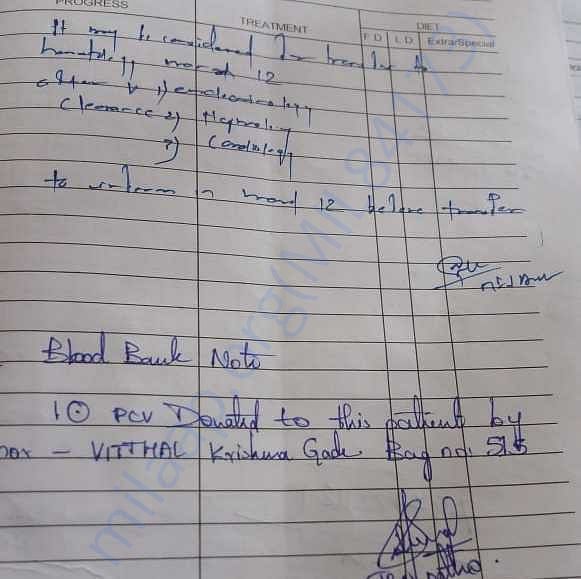 PROGRESS TREATMENT DIET
F D L D Extra/Special
It may be considered for transfer to
ward 12
1) Endocrinology
Clearance 2) Nephrology
3) Cardiology
to inform in ward 12 before transfer
Blood Bank Note
1 PCV Donated to this patient by
VITTHAL Krishna Gade Bag no. 515
milaap.org(MIL841173)